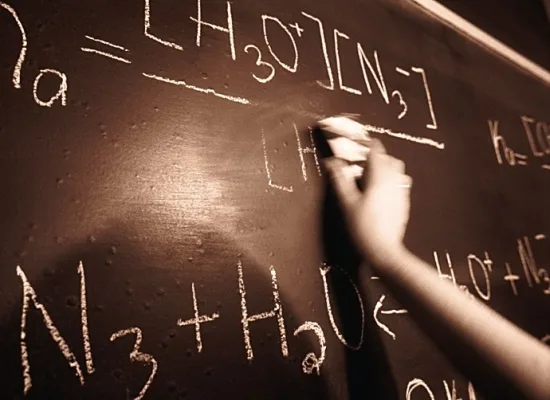 a = [H₃O⁺][N₃⁻]
[H
Ka=
N₃ + H₂O ← H₃O⁺ + N₃⁻